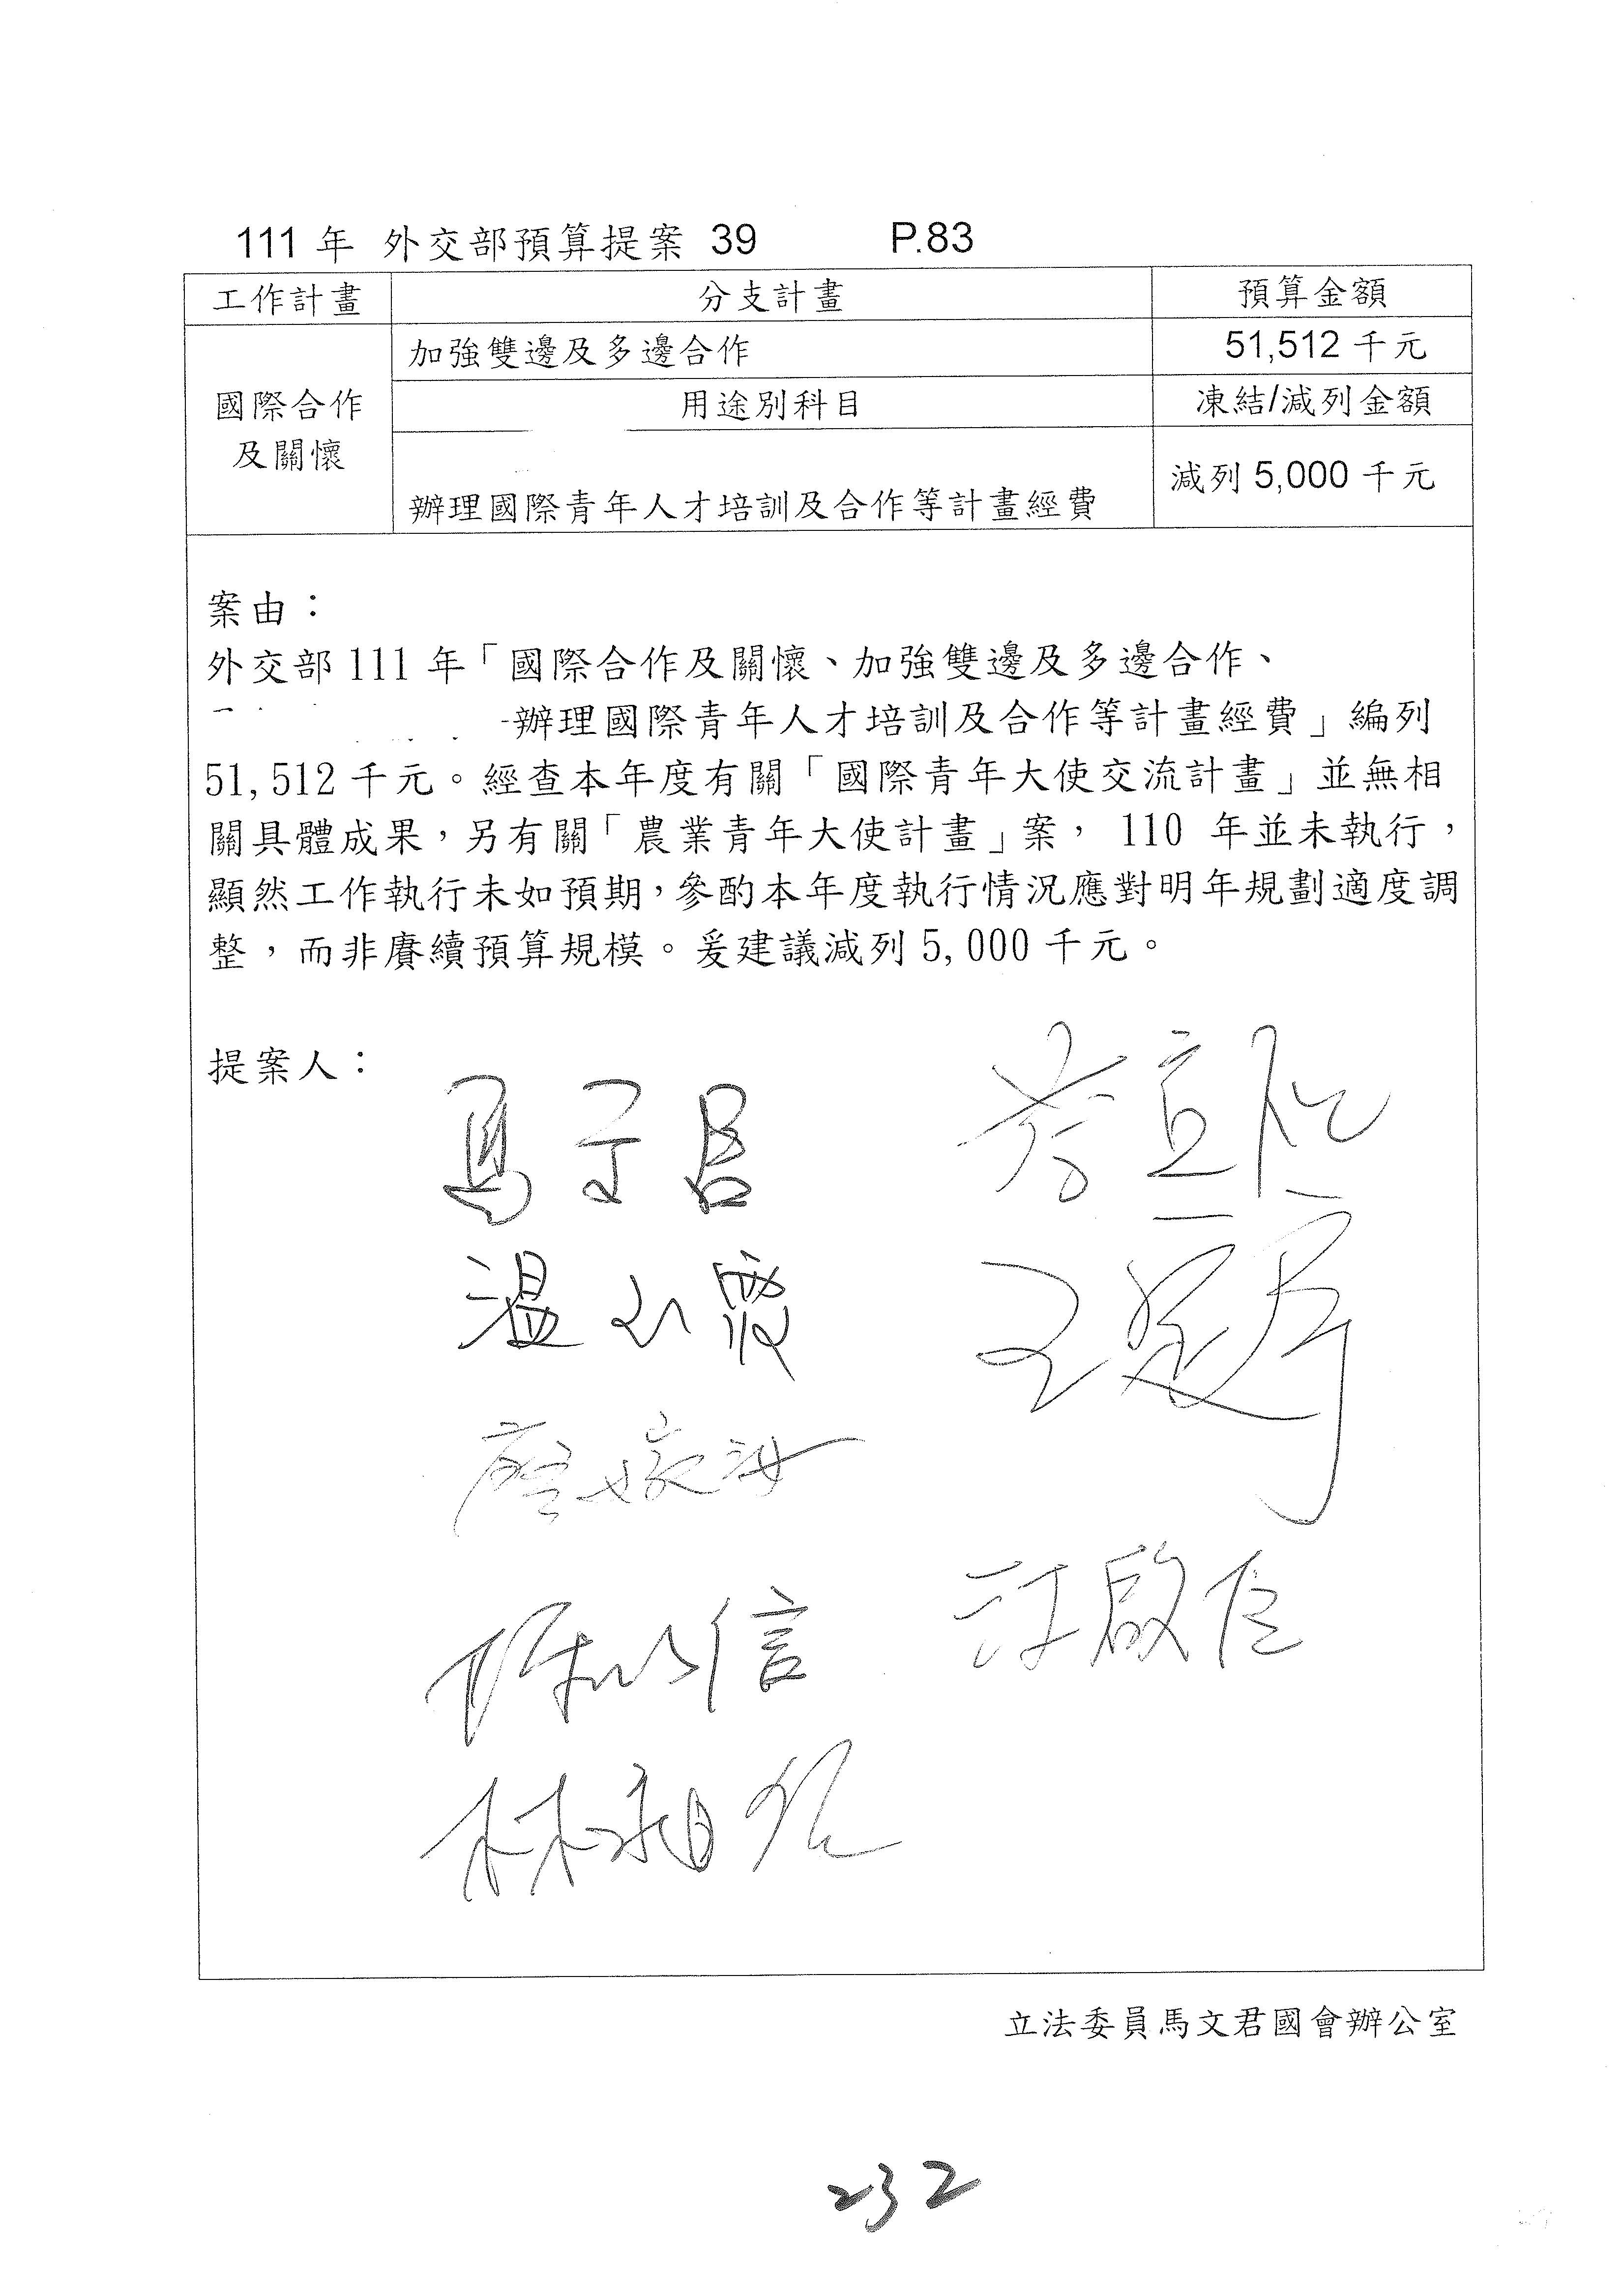 111 年 外交部預算提案 39 P.83
工作計畫 分支計畫 預算金額
國際合作
及關懷
加強雙邊及多邊合作 51,512 千元
用途別科目 凍結/減列金額
辦理國際青年人才培訓及合作等計畫經費 減列 5,000 千元
案由：
外交部 111 年「國際合作及關懷、加強雙邊及多邊合作、
-辦理國際青年人才培訓及合作等計畫經費」編列
51,512 千元。經查本年度有關「國際青年大使交流計畫」並無相
關具體成果，另有關「農業青年大使計畫」案， 110 年並未執行，
顯然工作執行未如預期，參酌本年度執行情況應對明年規劃適度調
整，而非賡續預算規模。爰建議減列 5,000 千元。
提案人：
馬文君
温玉霞
廖婉汝
陳以信
立法委員馬文君國會辦公室
232